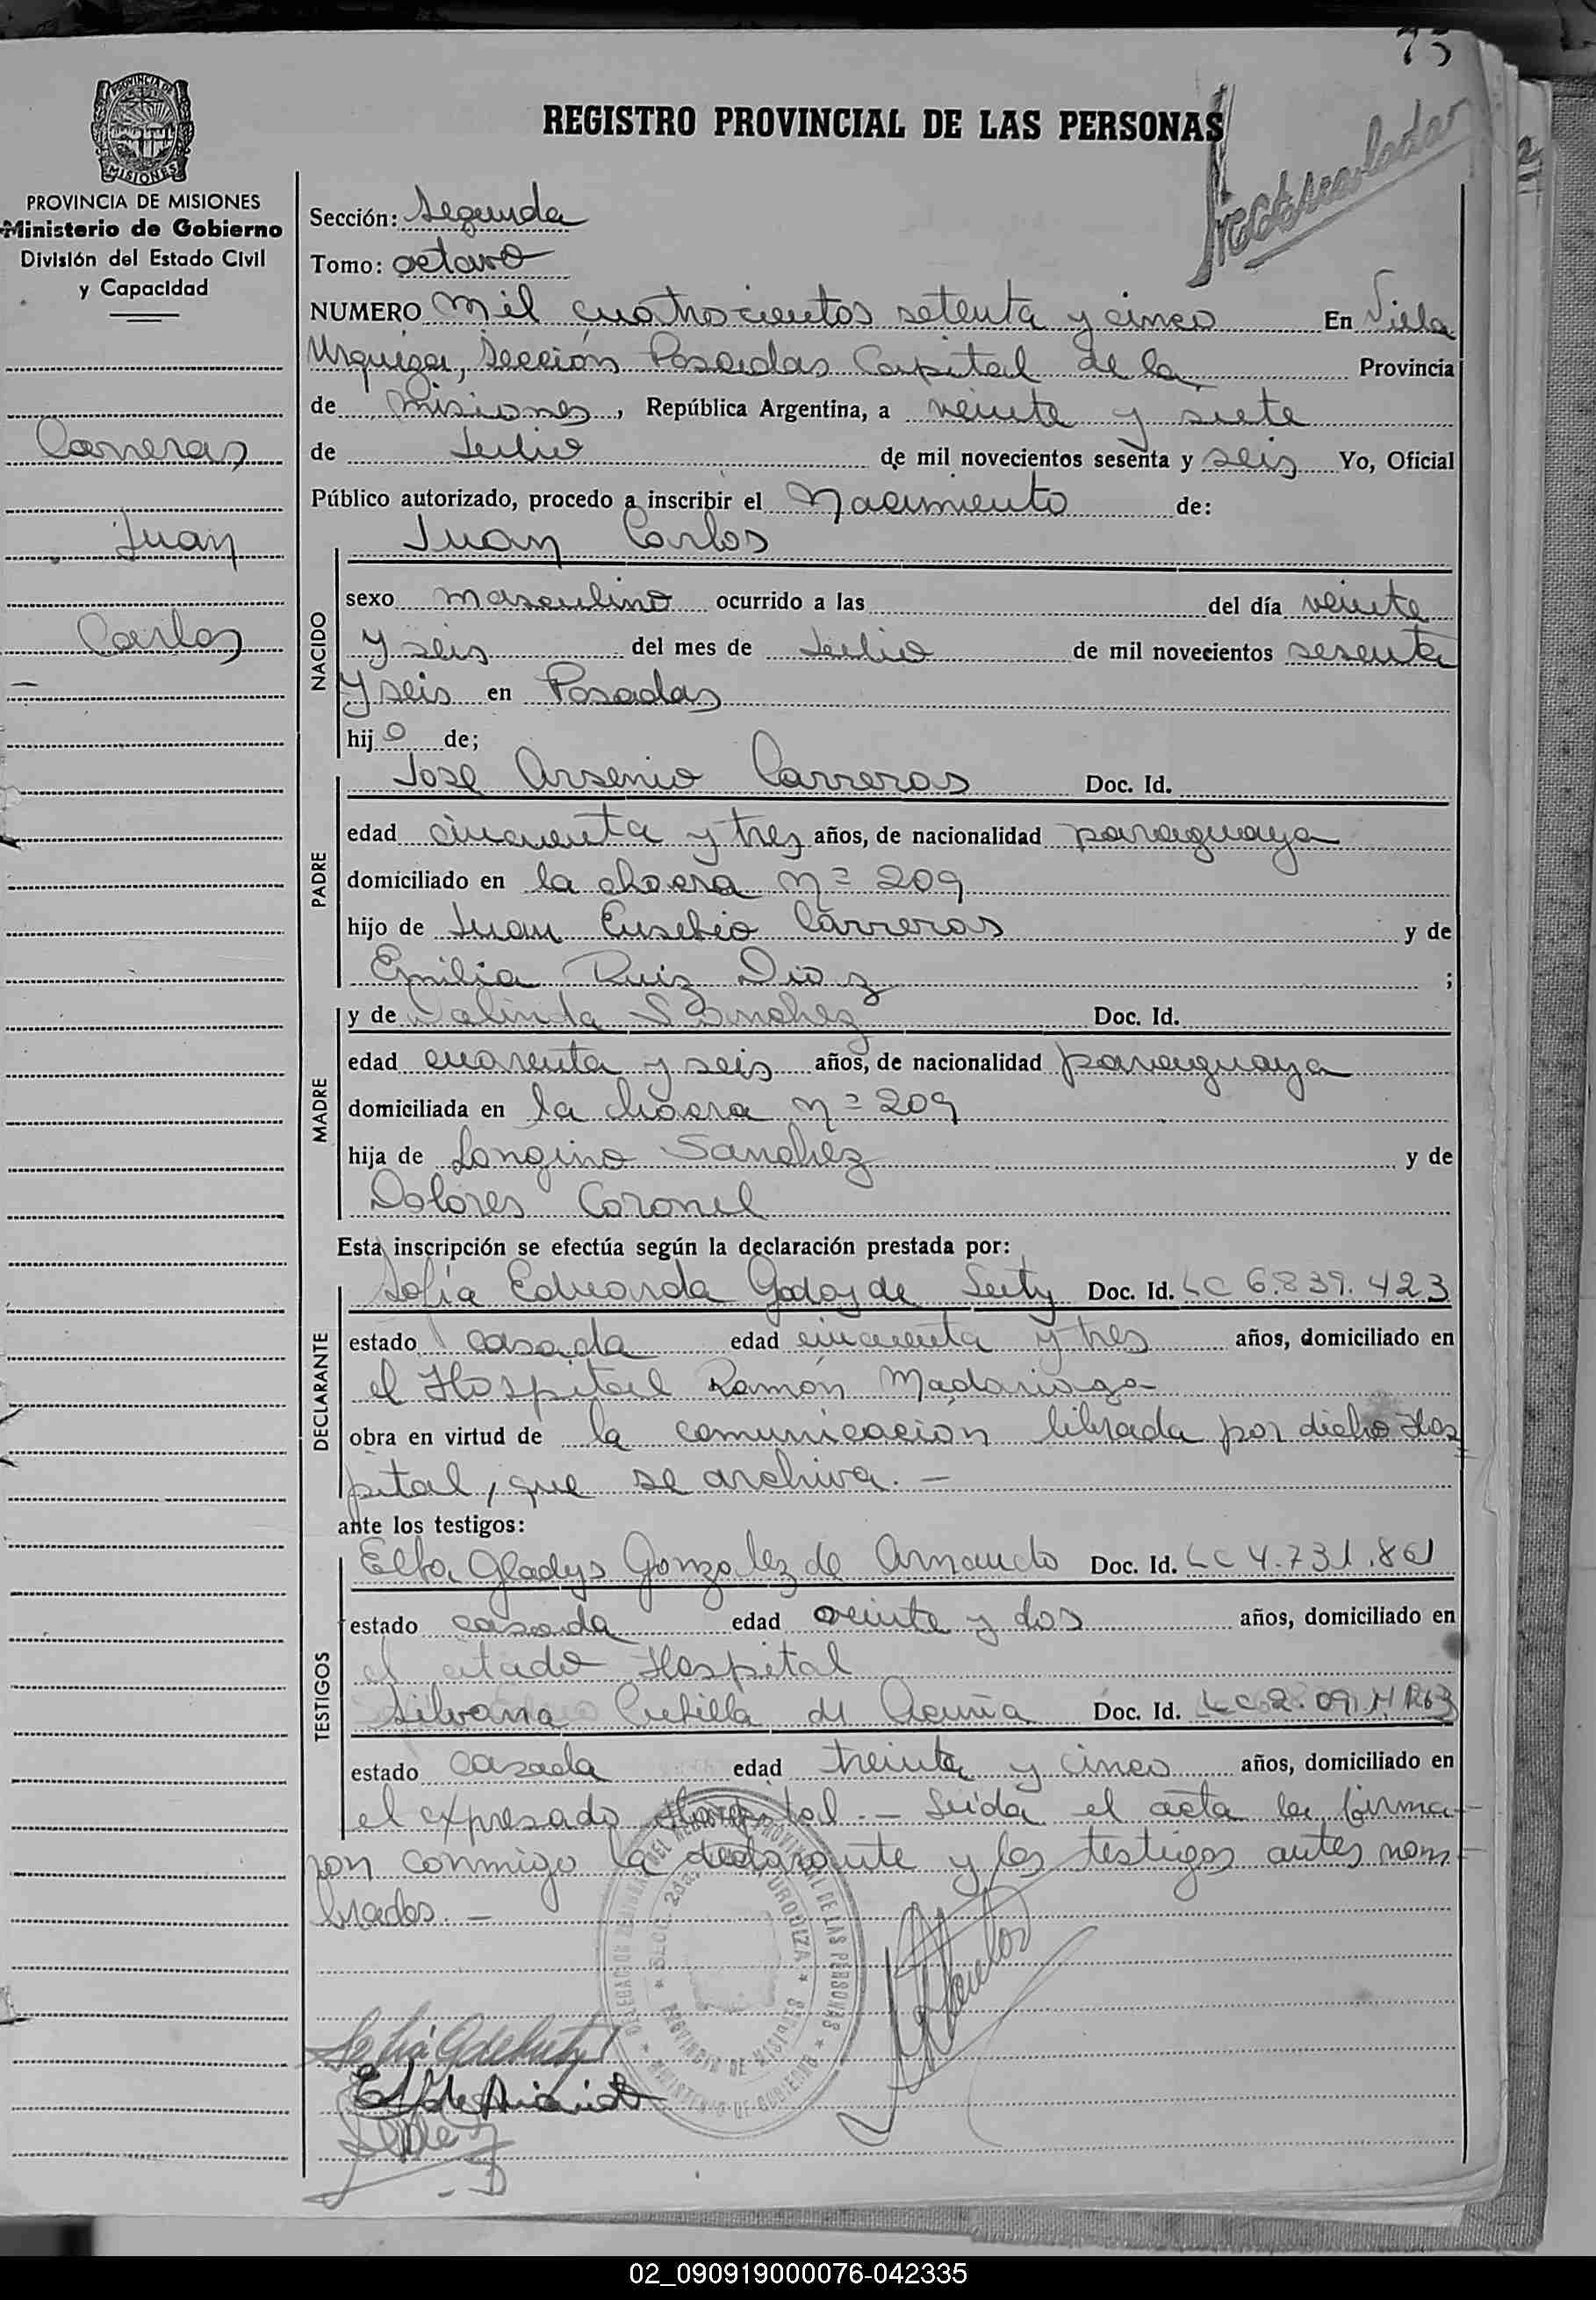 75
REGISTRO PROVINCIAL DE LAS PERSONAS
PROVINCIA DE MISIONES
Ministerio de Gobierno
División del Estado Civil
y Capacidad
Carreras
Juan
Carlos
Sección: Segunda
Tomo: octavo
NUMERO Mil cuatrocientos setenta y cinco En Villa
Urquiza, Sección Posadas Capital de la Provincia
de Misiones, República Argentina, a veinte y siete
de Julio de mil novecientos sesenta y seis Yo, Oficial
Público autorizado, procedo a inscribir el Nacimiento de:
Juan Carlos
NACIDO
sexo masculino ocurrido a las del día veinte
y seis del mes de Julio de mil novecientos sesenta
y seis en Posadas
hijo de;
PADRE
Jose Arsenio Carreras Doc. Id.
edad cincuenta y tres años, de nacionalidad paraguaya
domiciliado en la chacra nº 209
hijo de Juan Eusebio Carreras y de
Emilia Ruiz Diaz ;
MADRE
y de Sanchez Doc. Id.
edad cuarenta y seis años, de nacionalidad paraguaya
domiciliada en la chacra nº 209
hija de Longino Sanchez y de
Dolores Coronel
Esta inscripción se efectúa según la declaración prestada por:
DECLARANTE
Sofía Eduarda Godoy de Doc. Id. LC 6.839.423
estado casada edad cincuenta y tres años, domiciliado en
el Hospital Ramón Madariaga
obra en virtud de la comunicación librada por dicho Hos
pital, que se archiva. —
ante los testigos:
TESTIGOS
Elba Gladys Gonzalez de Doc. Id. LC 4.731.861
estado casada edad veinte y dos años, domiciliado en
el citado Hospital
Silvana de Acuña Doc. Id. LC 2.09
estado casada edad treinta y cinco años, domiciliado en
el expresado Hospital. — Leida el acta la firma-
ron conmigo la declarante y los testigos antes nom-
brados. —
DELEGACION DEL REGISTRO PROVINCIAL DE LAS PERSONAS
MINISTERIO DE GOBIERNO
SECC. 2da. URQUIZA
PROVINCIA DE MISIONES
02_090919000076-042335